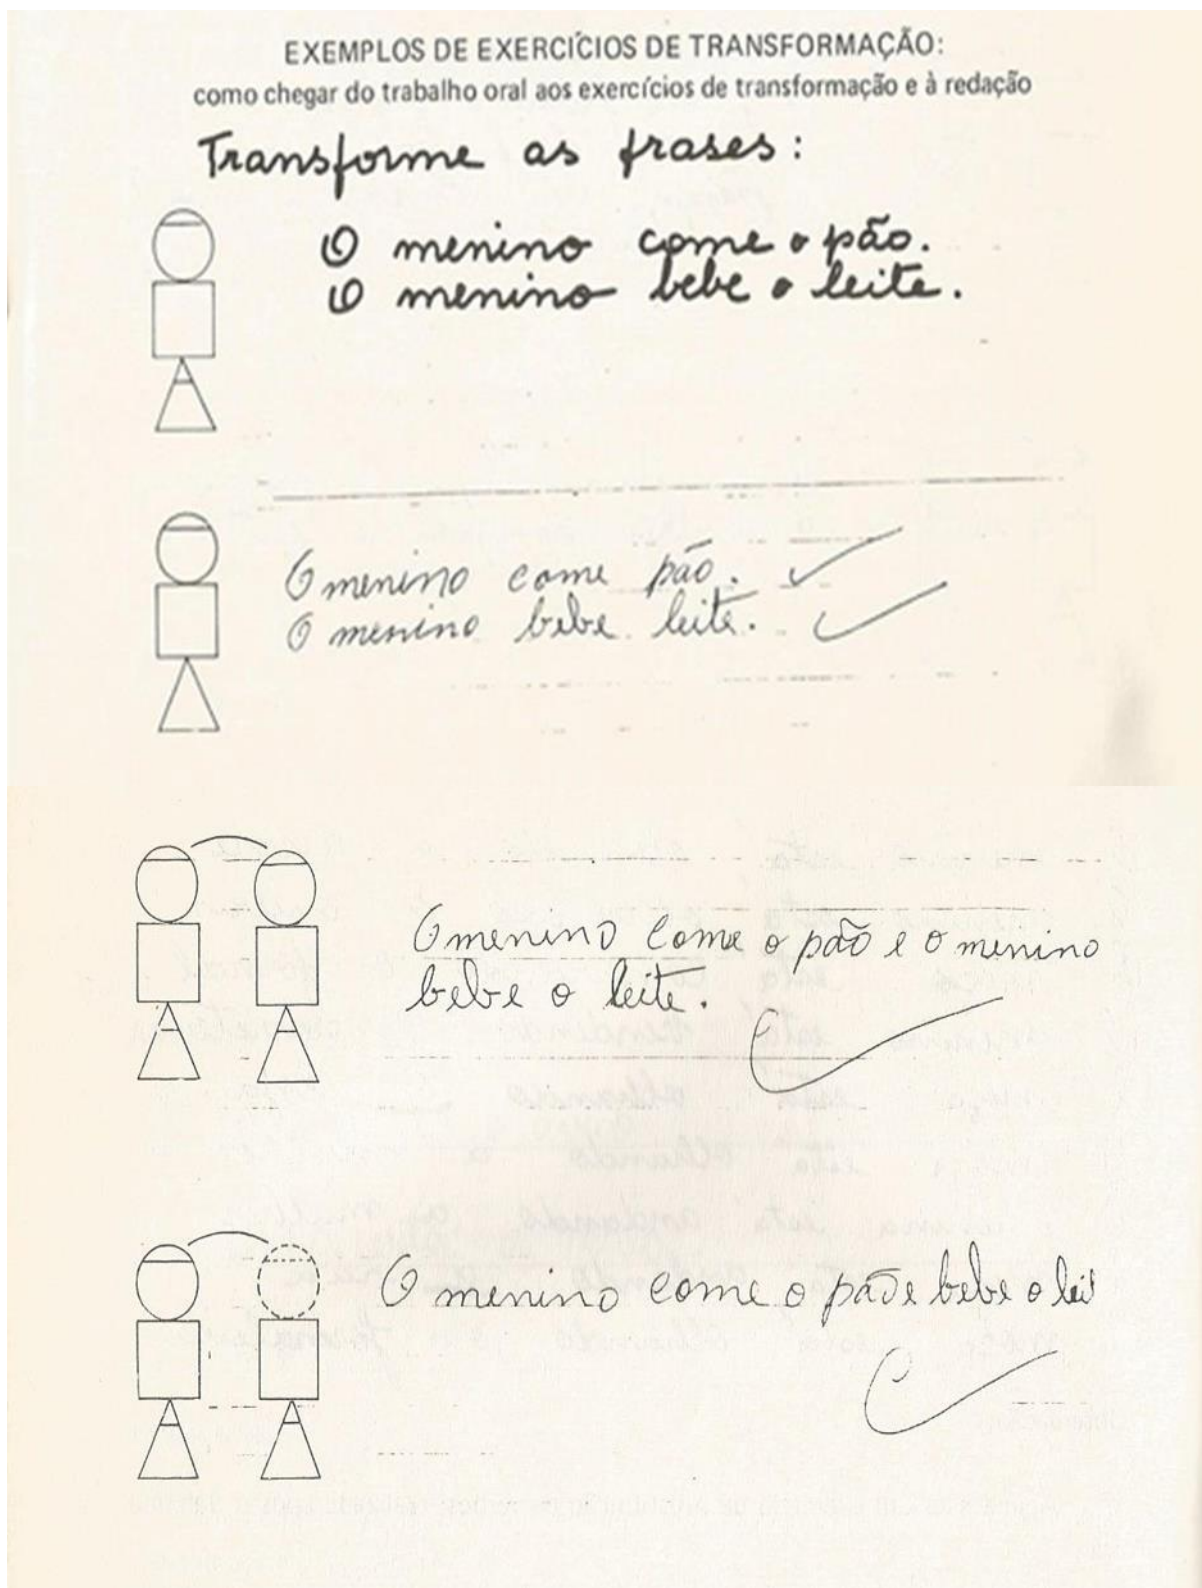 EXEMPLOS DE EXERCÍCIOS DE TRANSFORMAÇÃO:
como chegar do trabalho oral aos exercícios de transformação e à redação
Transforme as frases:
O menino come o pão.
O menino bebe o leite.
O menino come pão.
O menino bebe leite.
O menino come o pão e o menino
bebe o leite.
O menino come o pão e bebe o leit